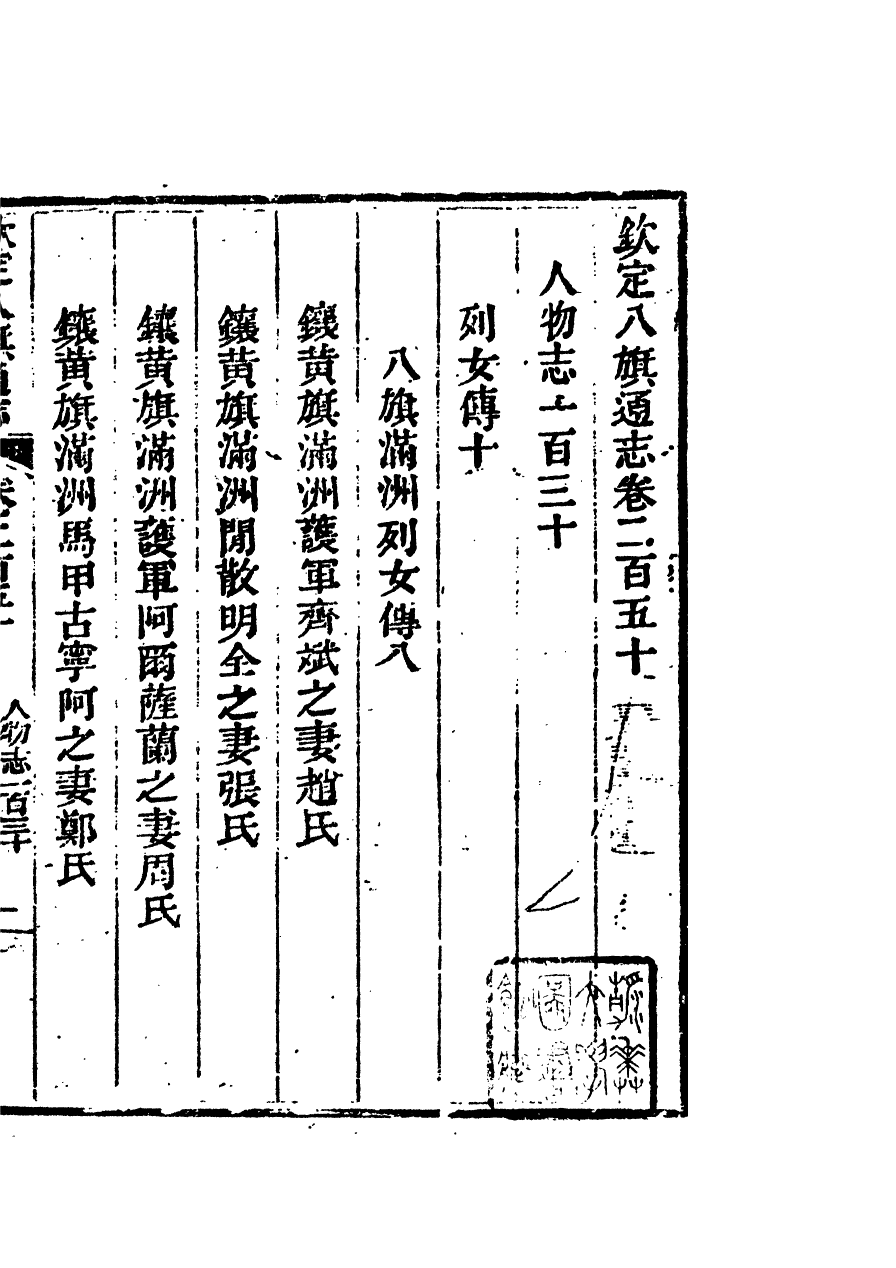 欽定八旗通志卷二百五十
人物志一百三十
列女傳十
八旗滿洲列女傳八
鑲黃旗滿洲護軍齊斌之妻趙氏
鑲黃旗滿洲閒散明全之妻張氏
鑲黃旗滿洲護軍阿爾薩蘭之妻周氏
鑲黃旗滿洲馬甲古寧阿之妻鄭氏
欽定八旗通志
卷二百五十
人物志一百三十
一